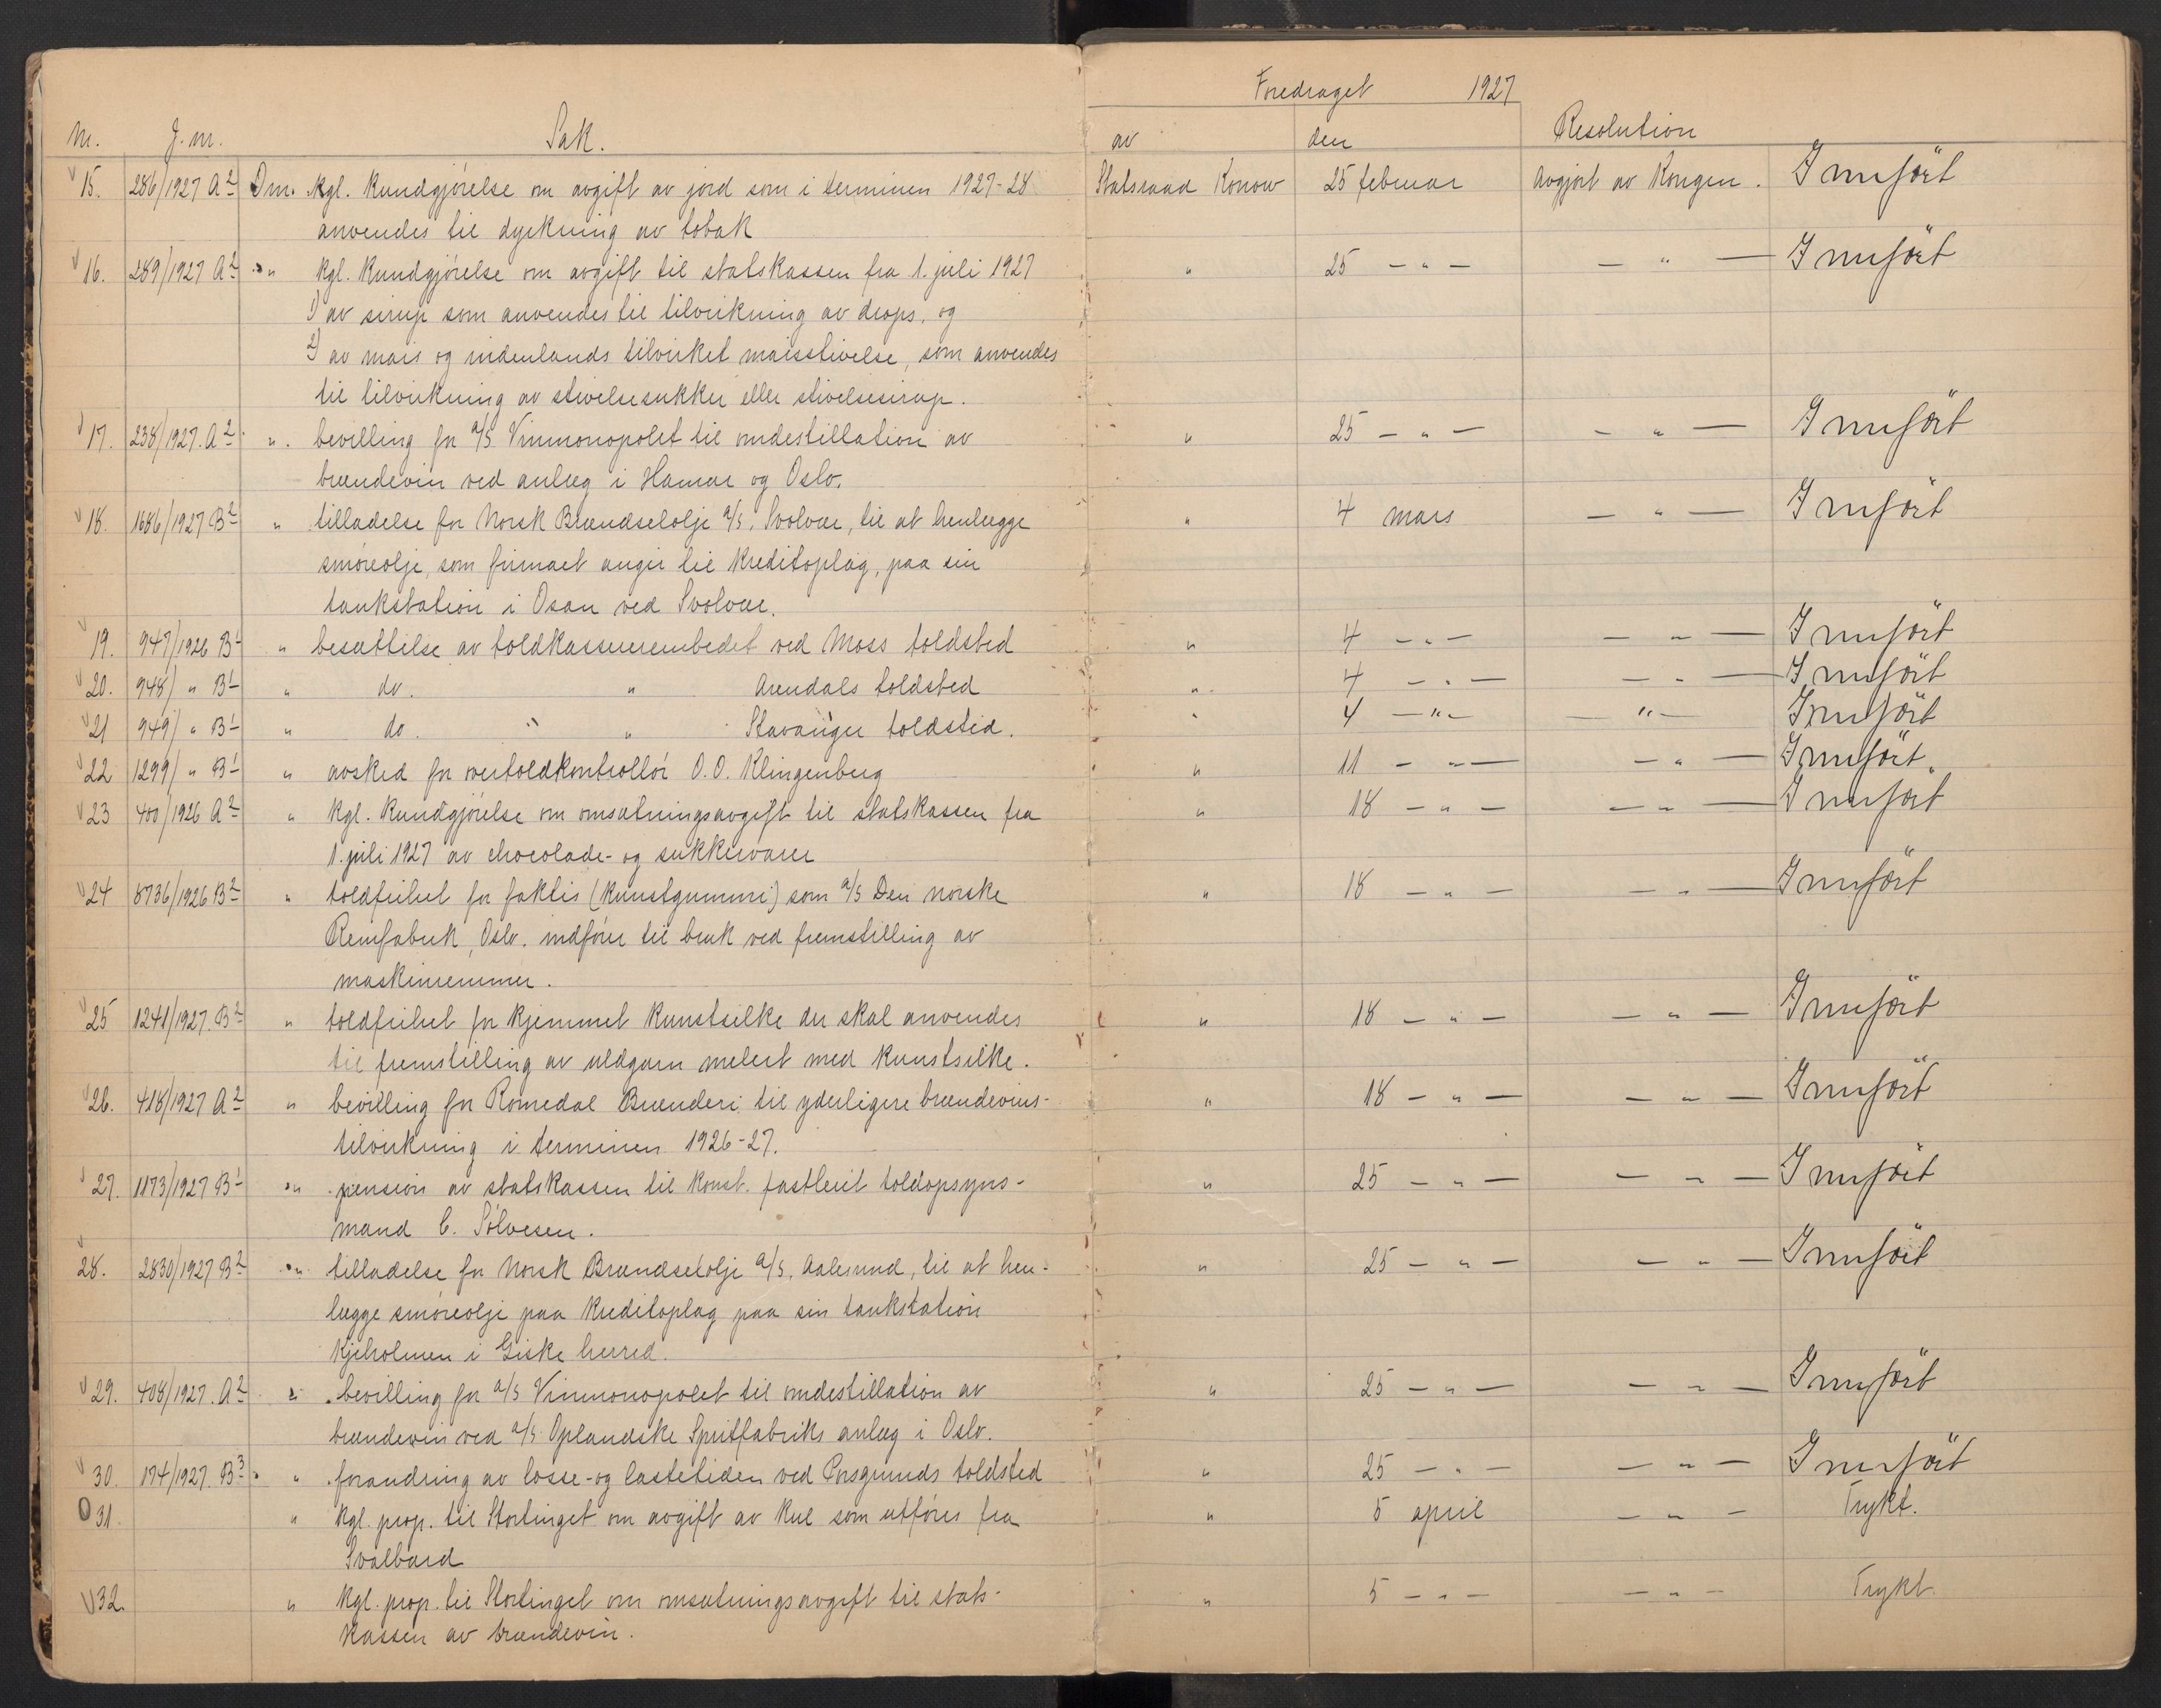 Foredraget 1927
Nr. J.nr. Sak. av den Resolution
15. 286/1927 A2 Om kgl. kundgjörelse om avgift av jord som i terminen 1927-28 Statsraad Konow 25 februar Avgjort av Kongen. Innfört
anvendes til dyrkning av tobak
16. 289/1927 A2 " kgl. kundgjörelse om avgift til statskassen fra 1. juli 1927 " 25 - " - - " - Innfört
1) av sirup som anvendes til tilvirkning av drops, og
2) av mais og indenlands tilvirket maisstivelse, som anvendes
til tilvirkning av stivelsesukker eller stivelsesirup.
17. 238/1927. A2 " bevilling for a/s Vinmonopolet til omdestillation av " 25 - " - - " - Innfört
brændevin ved anlæg i Hamar og Oslo.
18. 1686/1927 B2 " tilladelse for Norsk Brændselolje a/s, Svolvær, til at henlægge " 4 mars - " - Innfört
smöreolje, som firmaet angir til kreditoplag, paa sin
tankstation i Osan ved Svolvær.
19. 947/1926 B1 " besættelse av toldkassererembedet ved Moss toldsted " 4 - " - - " - Innfört
20. 948/ " B1 " do. " Arendals toldsted " 4 - " - - " - Innfört
21 949/ " B1 " do. " " Stavanger toldsted. " 4 - " - - " - Innfört
22 1299/ " B1 " avsked for overtoldkontrollör O. O. Klingenberg " 11 - " - - " - Innfört.
23 400/1926 A2 " kgl. kundgjörelse om omsætningsavgift til statskassen fra " 18 - " - - " - Innfört
1. juli 1927 av chocolade- og sukkervarer
24 8736/1926 B2 " toldfrihet for faktis (kunstgummi) som a/s Den norske " 18 - " - - " - Innfört
Remfabrik, Oslo, indförer til bruk ved fremstilling av
maskinremmer.
25 1241/1927. B2 " toldfrihet for kjemmet kunstsilke der skal anvendes " 18 - " - - " - Innfört
til fremstilling av uldgarn melert med kunstsilke.
26. 418/1927 A2 " bevilling for Romedal Brænderi til yderligere brændevins- " 18 - " - - " - Innfört
tilvirkning i terminen 1926-27.
27. 1173/1927 B1 " pension av statskassen til konst. fastlönt toldopsyns- " 25 - " - - " - Innfört
mand C. Sölvesen.
28. 2830/1927 B2 " tilladelse for Norsk Brændselolje a/s, Aalesund, til at hen- " 25 - " - - " - Innfört
lægge smöreolje paa kreditoplag paa sin tankstation
Kjeholmen i Giske herred.
29. 408/1927. A2 " bevilling for a/s Vinmonopolet til omdestillation av " 25 - " - - " - Innfört
brændevin ved a/s Oplandske Spritfabriks anlæg i Oslo.
30. 174/1927. B3 " forandring av losse- og lastetiden ved Porsgrunds toldsted " 25 - " - - " - Innfört
31. " kgl. prop. til Stortinget om avgift av kul som utföres fra " 5 april - " - Trykt.
Svalbard
32. " kgl. prop. til Stortinget om omsætningsavgift til stats- " 5 - " - - " - Trykt.
kassen av brændevin.